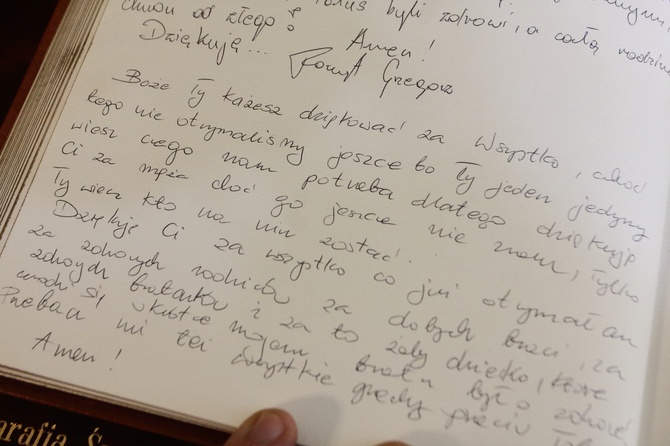 były zdrowi, a całą rodzinę
chroń od złego!
Dziękuję... Amen!
Grzegorz
Boże Ty każesz dziękować za wszystko, choć
tego nie otrzymaliśmy jeszcze bo Ty jeden jedyny
wiesz czego nam potrzeba dlatego dziękuję
Ci za męża choć go jeszcze nie znam, tylko
Ty wiesz kto na mu zostać.
Dziękuję Ci za wszystko co już otrzymałam
za zdrowych rodziców za dobrych braci, za
zdrowych bratanków i za to żeby dziecko, które
urodzi się mojemu bratu było zdrowe
Przebacz mi też wszystkie grzechy przeciw
Amen!
arafia Ś